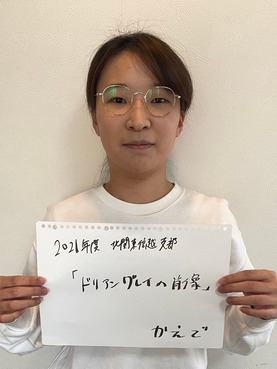 2021年度 北関東信越支部
「ドリアングレイの肖像」
かえで